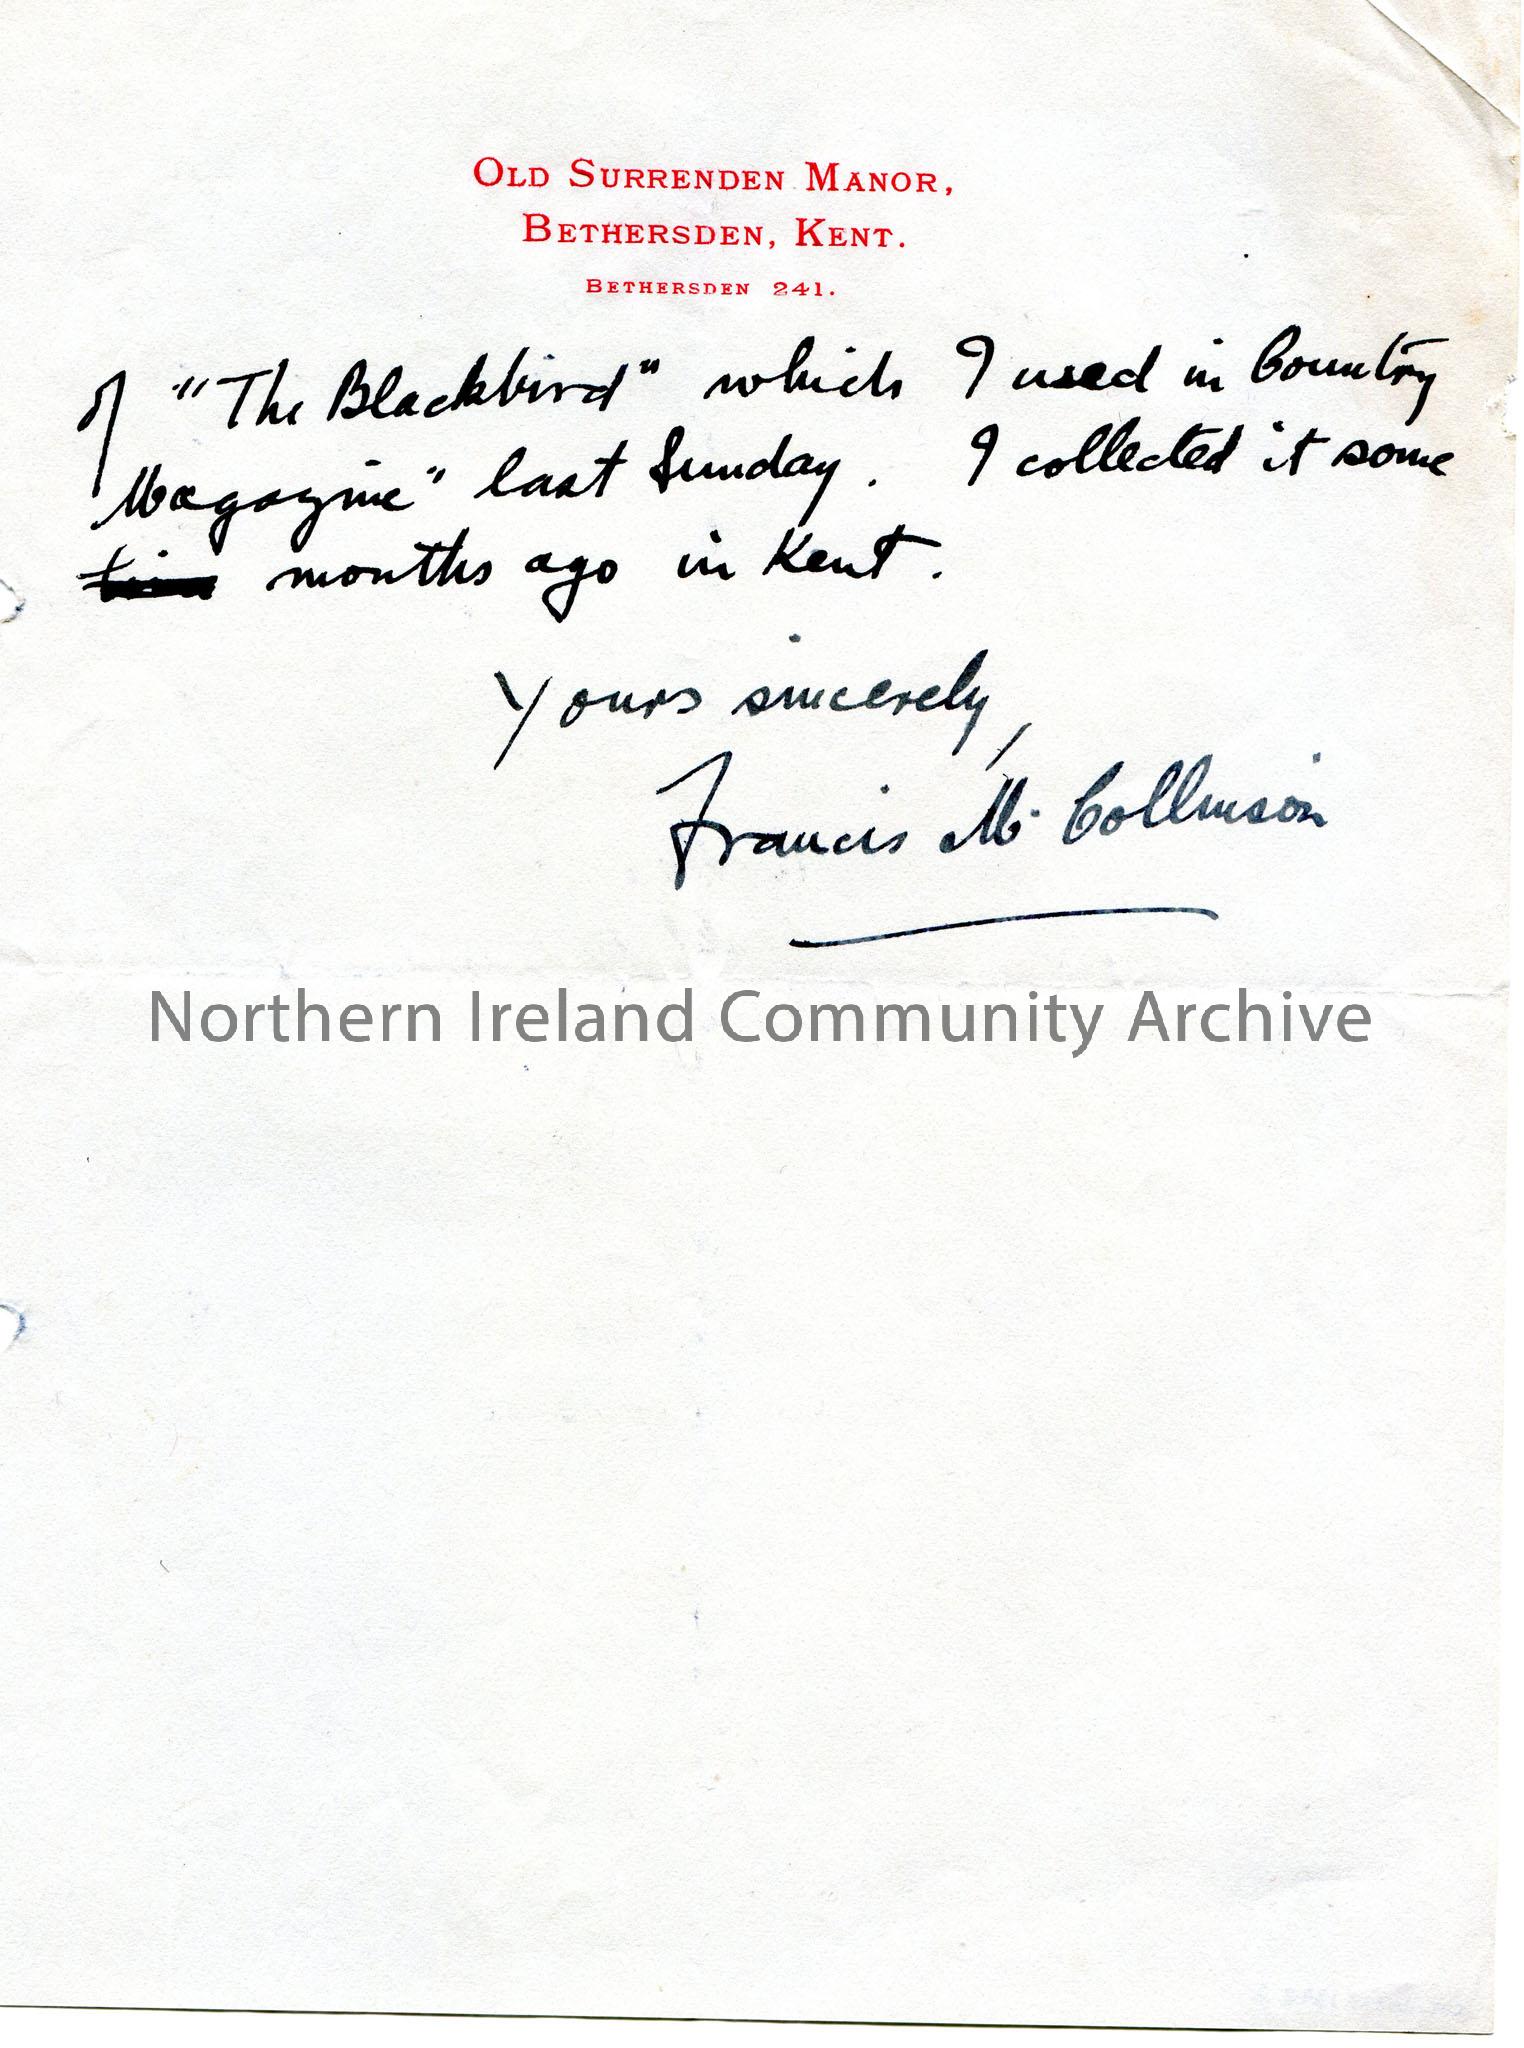 OLD SURRENDEN MANOR,
BETHERSDEN, KENT.
BETHERSDEN 241.
of "The Blackbird" which I used in Country
Magazine" last Sunday. I collected it some
months ago in Kent.
Yours sincerely,
Francis M. Collinson
Northern Ireland Community Archive